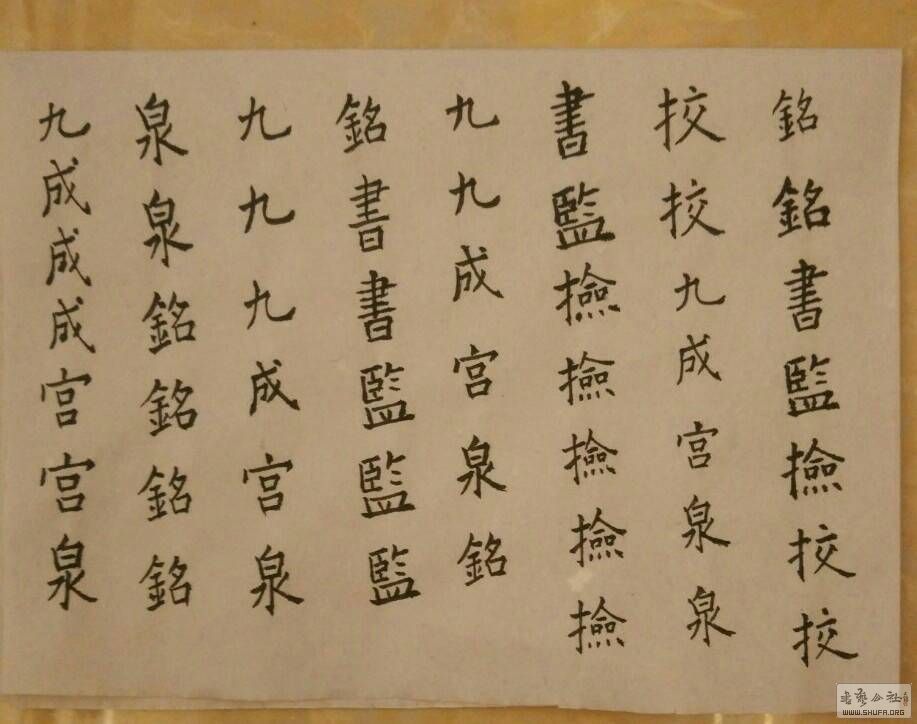 九成成成宫宫泉
泉泉銘銘銘銘
九九九成宫泉
銘書書監監監
九九成宫泉銘
書監撿撿撿撿撿
挍挍九成宫泉泉
銘銘書監撿挍挍
书艺公社
WWW.SHUFA.ORG